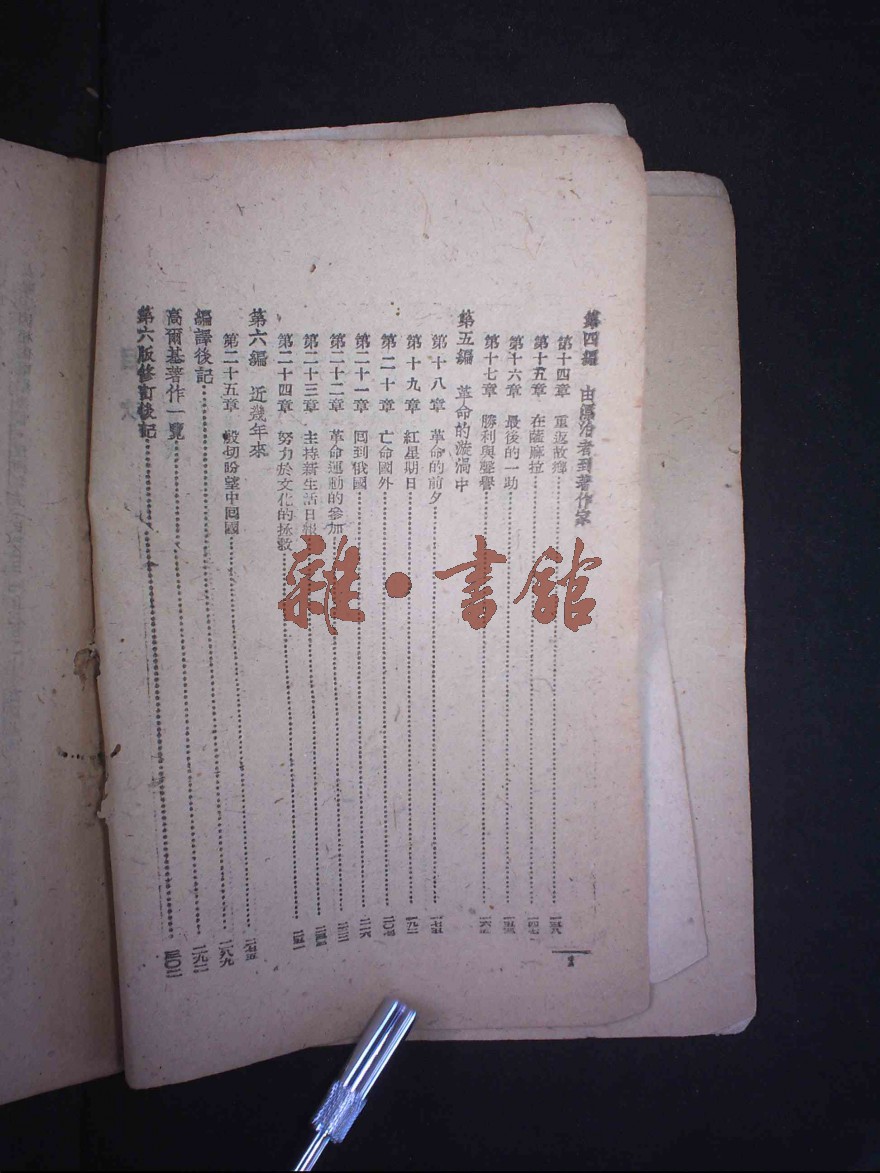 第四編　由屬治者到著作家
第十四章　重返故鄉
第十五章　在薩麻拉……一四七
第十六章　最後的一助
第十七章　勝利與聲譽
第五編　革命的漩渦中
第十八章　革命的前夕……一七五
第十九章　紅星期日……一九二
第二十章　亡命國外……二〇七
第二十一章　囘到俄國……二一六
第二十二章　革命運動的參加
第二十三章　主持新生活日報
第二十四章　努力於文化的拯救……二五一
第六編　近幾年來
第二十五章　殷切盼望中囘國……二七五
編譯後記……二八九
高爾基著作一覽……二九二
第六版修訂後記……三〇二
雜·書館